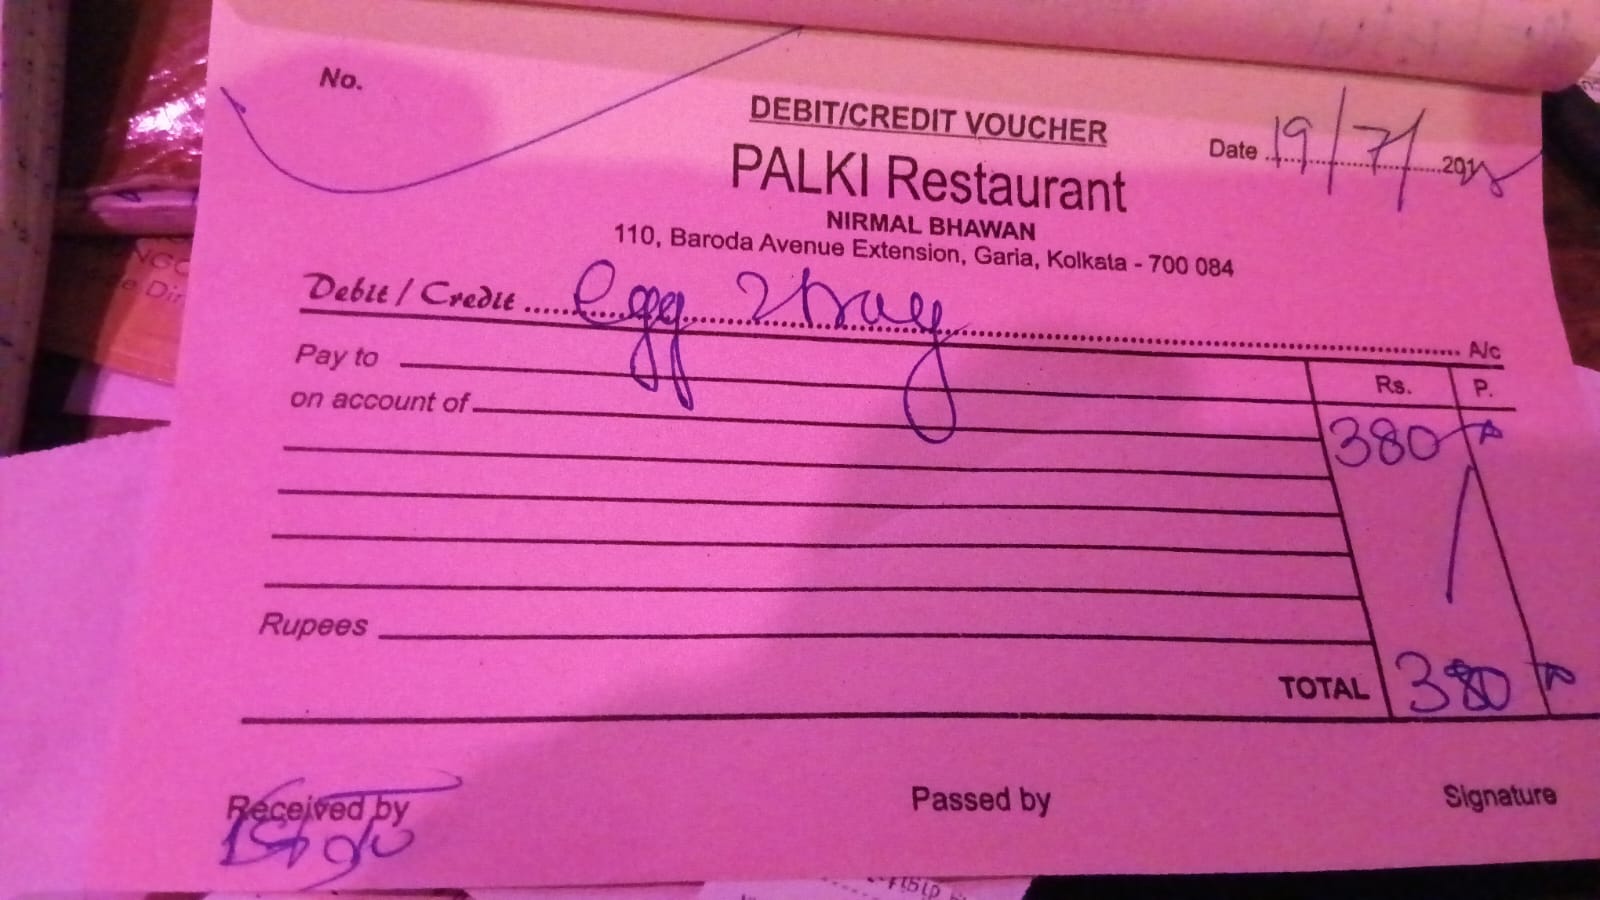 No.
DEBIT/CREDIT VOUCHER
Date 19/7/201
PALKI Restaurant
NIRMAL BHAWAN
110, Baroda Avenue Extension, Garia, Kolkata - 700 084
Debit / Credit ..... Egg ..... A/c
Pay to
Rs. P.
on account of
380
Rupees
TOTAL 380
Received by Passed by Signature